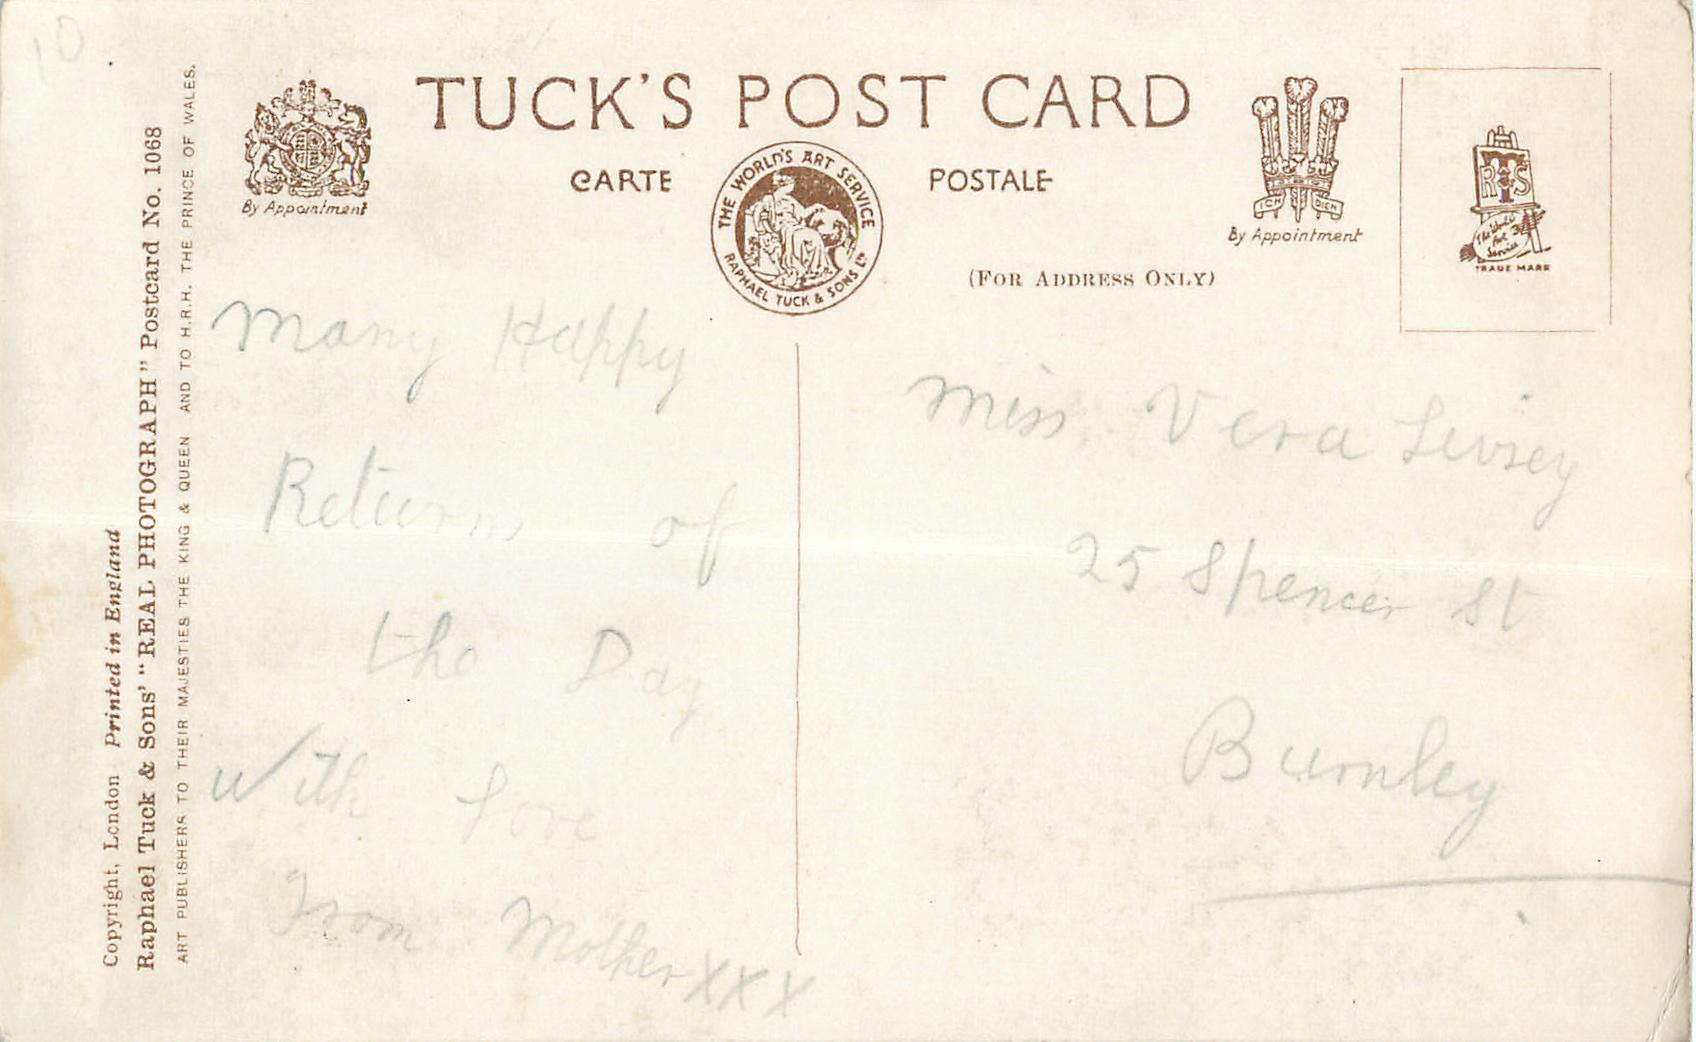 10
TUCK'S POST CARD
CARTE POSTALE
By Appointment
THE WORLD'S ART SERVICE
RAPHAEL TUCK & SONS LTD
ICH DIEN
By Appointment
R T S
The World's Art Service
TRADE MARK
(FOR ADDRESS ONLY)
Many Happy
Returns of
the Day
With Love
From Mother XXX
Miss Vera Livsey
25 Spencer St
Burnley
Copyright, London Printed in England
Raphael Tuck & Sons' "REAL PHOTOGRAPH" Postcard No. 1068
ART PUBLISHERS TO THEIR MAJESTIES THE KING & QUEEN AND TO H.R.H. THE PRINCE OF WALES.